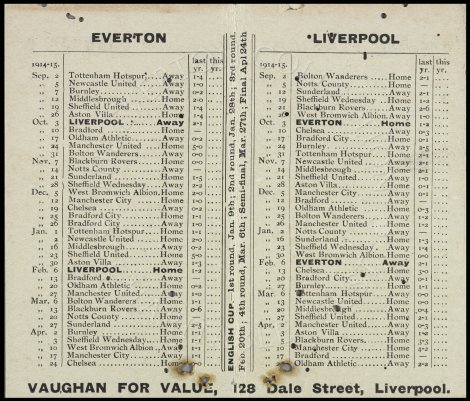 EVERTON
last this
1914-15. yr. yr.
Sep. 2 Tottenham Hotspur Away 1-4
„ 5 Newcastle United Away 1-0
„ 12 Middlesbrough Home 2-0
„ 19 Sheffield United Away 1-4
„ 26 Aston Villa Home
Oct. 3 LIVERPOOL Away 2-1
„ 10 Bradford Home —
„ 17 Oldham Athletic Away 0-2
„ 24 Manchester United Home 5-0
„ 31 Bolton Wanderers Home 0-0
Nov. 7 Blackburn Rovers Home 0-0
„ 14 Notts County Away —
„ 21 Sunderland Home 1-5
„ 28 Sheffield Wednesday Away 2-2
Dec. 5 West Bromwich Albion Home 2-0
„ 12 Manchester City Home 1-0
„ 19 Chelsea Away 0-2
„ 25 Bradford City Away
„ 26 Bradford City Home 1-1
Jan. 1 Tottenham Hotspur Home 1-1
„ 2 Newcastle United Home 2-0
„ 16 Middlesbrough Away 0-2
„ 23 Sheffield United Home 5-0
„ 30 Aston Villa Away 1-3
Feb. 6 LIVERPOOL Home 1-2
„ 13 Bradford Away —
„ 20 Oldham Athletic Home 0-2
„ 27 Manchester United Away 1-0
Mar. 6 Bolton Wanderers Home 1-1
„ 13 Blackburn Rovers Away 0-6
„ 20 Notts County Home —
„ 27 Sunderland Away 2-5
Apr. 2 Burnley Home 1-1
„ 3 Sheffield Wednesday Home 1-1
„ 10 West Bromwich Albion Away 1-1
„ 17 Manchester City Home 1-1
„ 24 Chelsea Home 0-0
ENGLISH CUP. 1st round, Jan. 9th; 2nd round, Jan. 28th; 3rd round,
Feb. 20th; 4th round, Mar. 6th; Semi-final, Mar. 27th; Final Apl 24th
LIVERPOOL
last this
1914-15. yr. yr.
Sep. 2 Bolton Wanderers Home 2-1
„ 5 Notts County Home
„ 12 Sunderland Away
„ 19 Sheffield Wednesday Home
„ 21 Blackburn Rovers Away
„ 26 West Bromwich Albion Home 0-0
Oct. 3 EVERTON Home 1-2
„ 10 Chelsea Away 0-3
„ 17 Bradford City Home 0-1
„ 24 Burnley Away
„ 31 Tottenham Hotspur Home 2-1
Nov. 7 Newcastle United Away
„ 14 Middlesbrough Home 2-1
„ 21 Sheffield United Away
„ 28 Aston Villa Home 0-1
Dec. 5 Manchester City Away
„ 12 Bradford Home
„ 19 Oldham Athletic Home 0-3
„ 25 Bolton Wanderers Away
„ 26 Manchester United Home 1-2
Jan. 2 Notts County Away
„ 16 Sunderland Home 1-3
„ 23 Sheffield Wednesday Away
„ 30 West Bromwich Albion Home 0-0
Feb. 6 EVERTON Away 2-1
„ 13 Chelsea Home 3-0
„ 20 Bradford City Away
„ 27 Burnley Home 1-1
Mar. 6 Tottenham Hotspur Away 0-0
„ 13 Newcastle United Home 0-0
„ 20 Middlesbrough Away
„ 27 Sheffield United Home 2-1
Apr. 2 Manchester United Away 0-3
„ 3 Aston Villa Away
„ 5 Blackburn Rovers Home
„ 10 Manchester City Home
„ 17 Bradford Away
„ 24 Oldham Athletic Away 2-2
VAUGHAN FOR VALUE, 128 Dale Street, Liverpool.